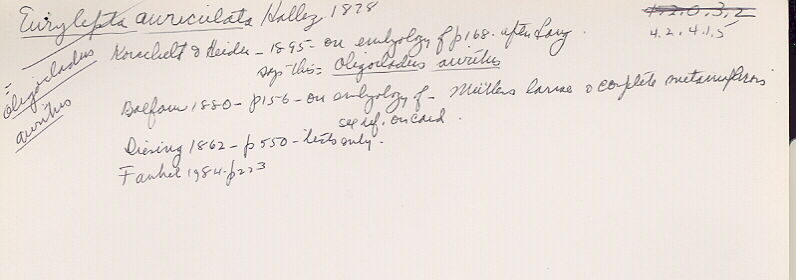 Eurylepta auriculata Hallez, 1878
4.2.0.3.2
4.2.4.1.5
= Oligocladus auritus
Korschelt & Heider - 1895 - on embryology of p168. after Lang.
says this = Oligocladus auritus
Balfour 1880 - p156 - on embryology of - Müllers larvae & complete metamorphosis
see ref. on card.
Diesing 1862 - p550 - lists only.
Faubel 1984 - p223